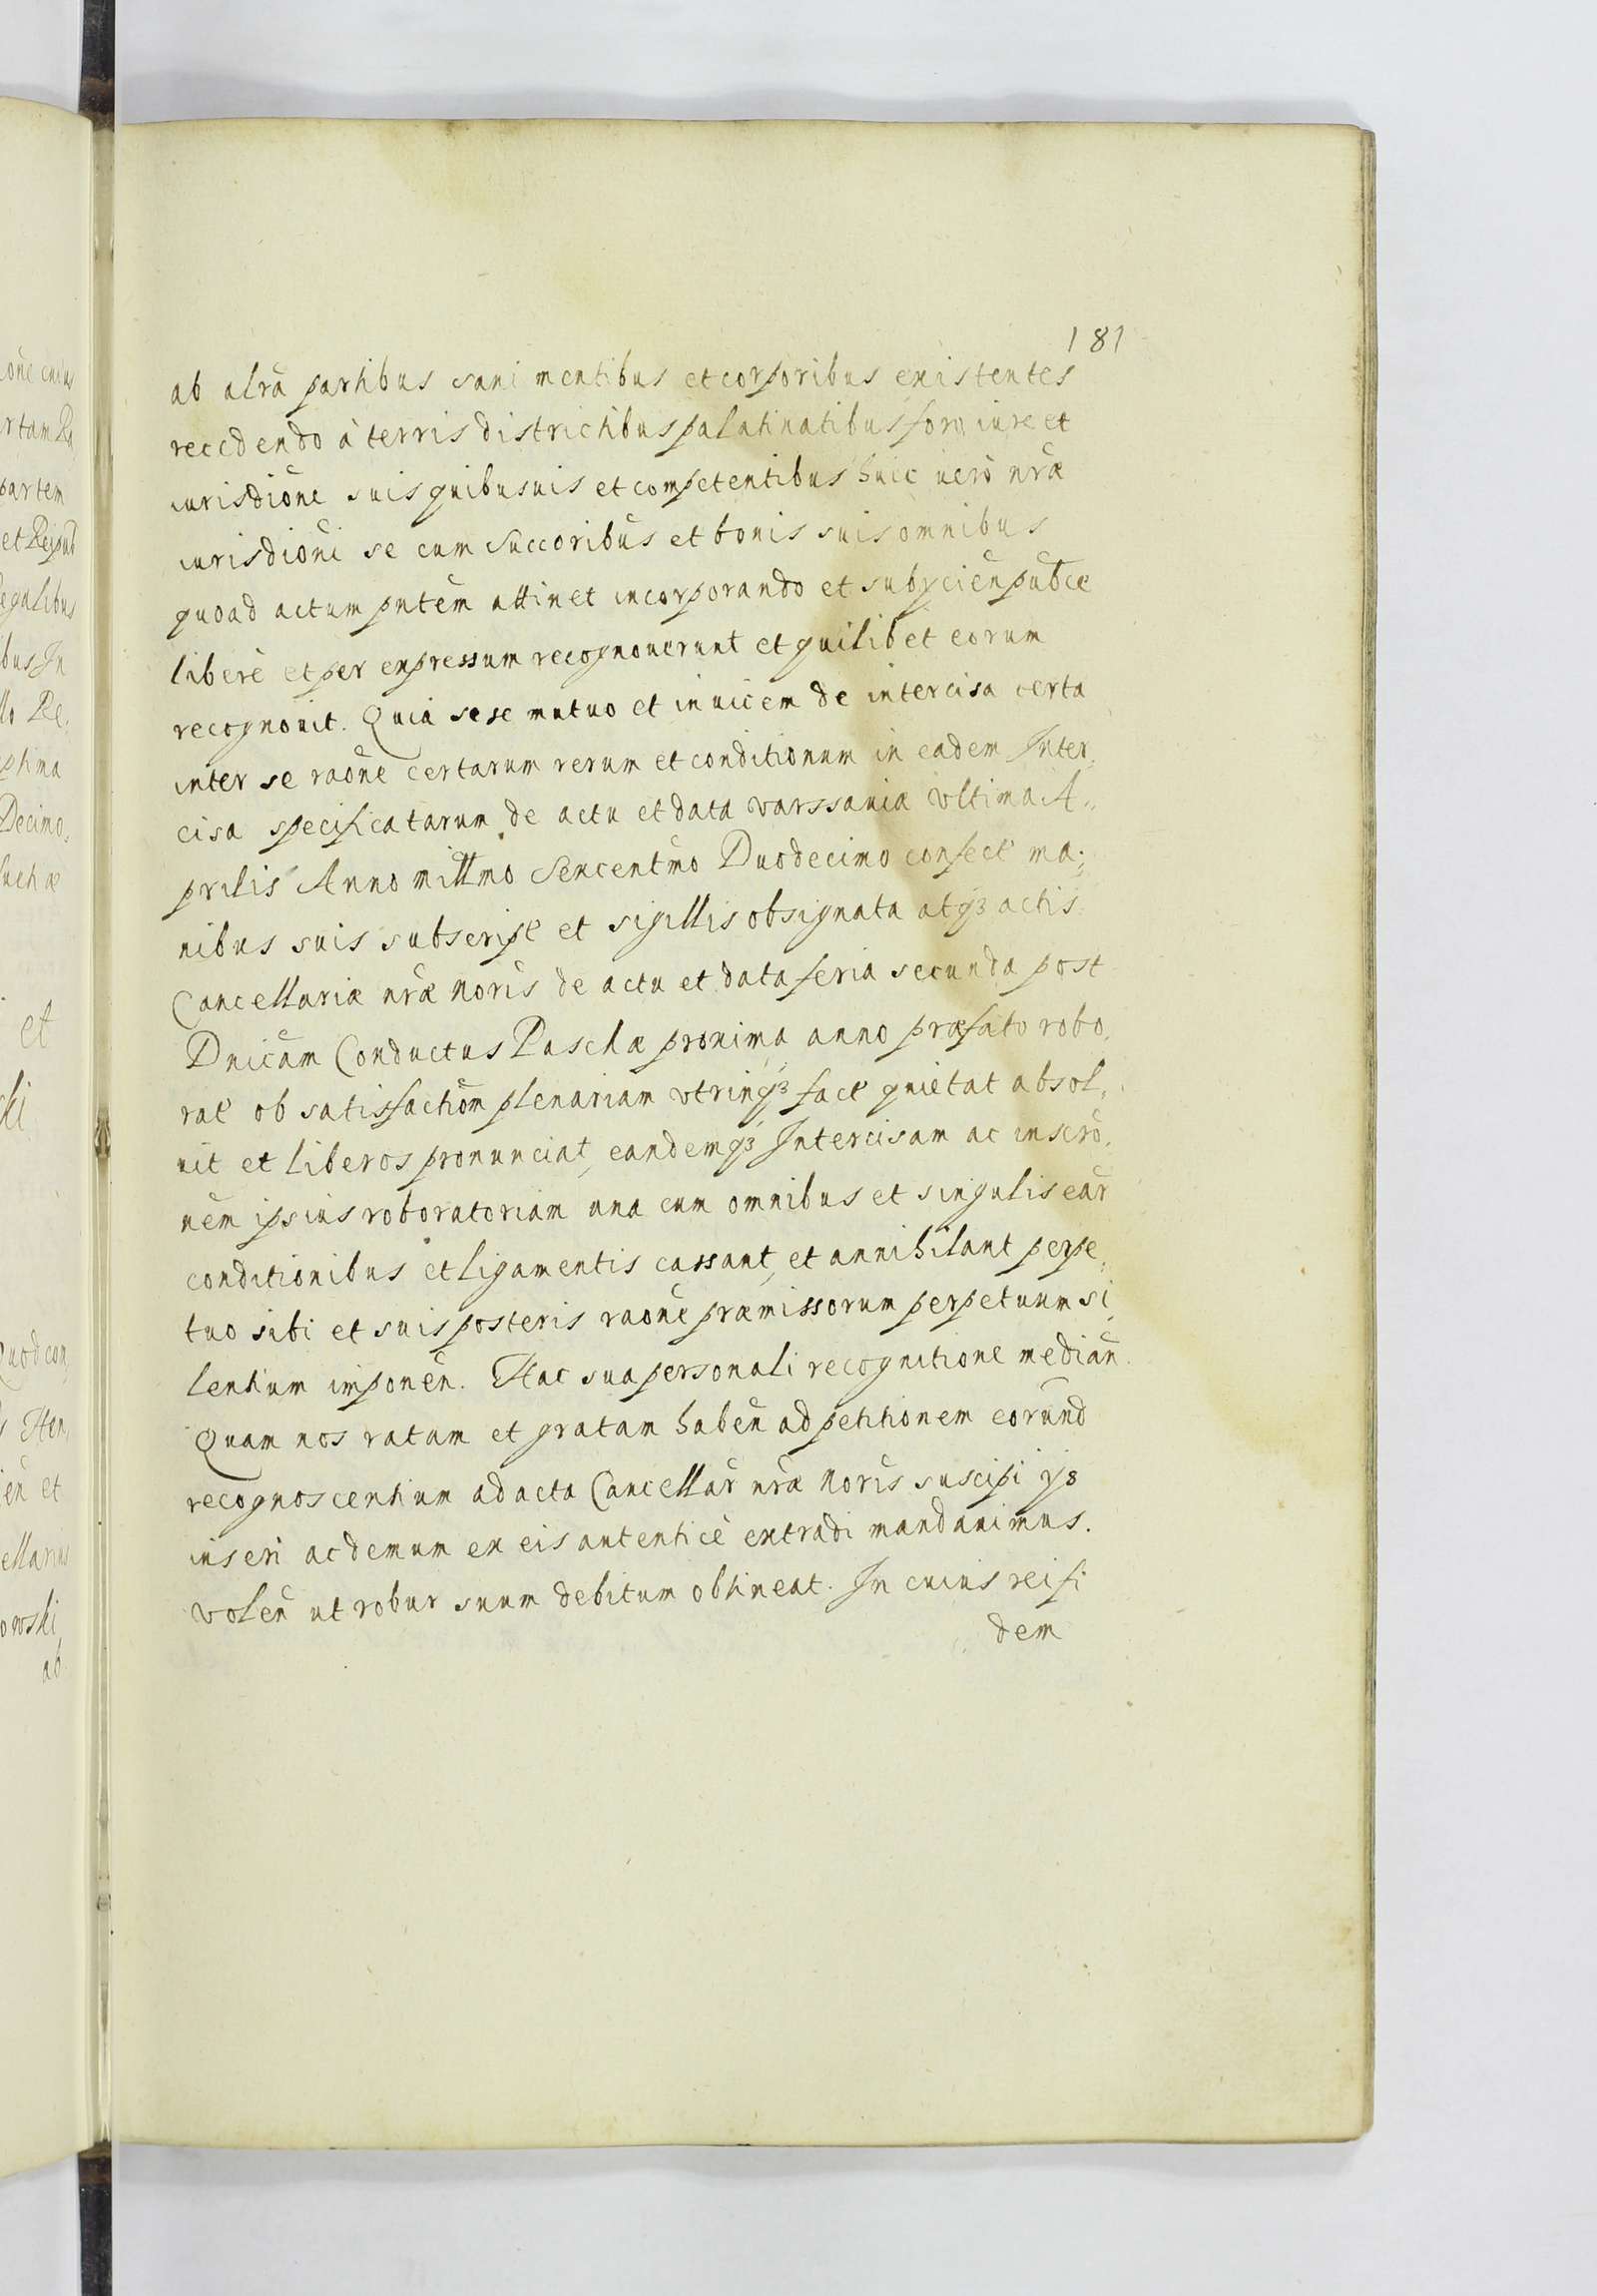 181
ab alrã partibus sani mentibus et corporibus existentes
recedendo à terris districtibus palatinatibus foro iure et
iurisdiõne suis quibusuis et competentibus huic uerò nrãe
iurisdiõni se cum Succoribũs et bonis suis omnibus
quoad actum pntẽm attinet incorporando et subijcieñ pubce
liberè et per expressum recognouerunt et quilibet eorum
recognouit. Quia sese mutuo et inuicem de intercisa certa
inter se raõne certarum rerum et conditionum in eadem Inter,
cisa specificatarum de actu et data varssauiæ vltima A,,
prilis Anno millmo Sexcentmo Duodecimo confect ma,,
nibus suis subscript et sigillis obsignata atq3 actis
Cancellariæ nrãe Noris de actu et data feria secunda post
Dnicãm Conductus Paschæ proxima anno præfato robo,
rat ob satisfactiõm plenariam vtrinq3 fact quietat absol,
uit et liberos pronunciat, eandemq3 Intercisam ac inscrõ,
nẽm ipsius roboratoriam una cum omnibus et singulis eãr
conditionibus et ligamentis cassant, et annihilant perpe,
tuo sibi et suis posteris raõne præmissorum perpetuum si,
lentium imponeñ. Hac sua personali recognitione mediañ.
Quam nos ratam et gratam habeñ ad petitionem eorũnd
recognoscentium ad acta Cancellar̃ nrãe Noris suscipi
inseri ac demum ex eis autenticè extrãdi mandauimus.
voleñ ut robur suum debitum obtineat. In cuius rei fi
dem